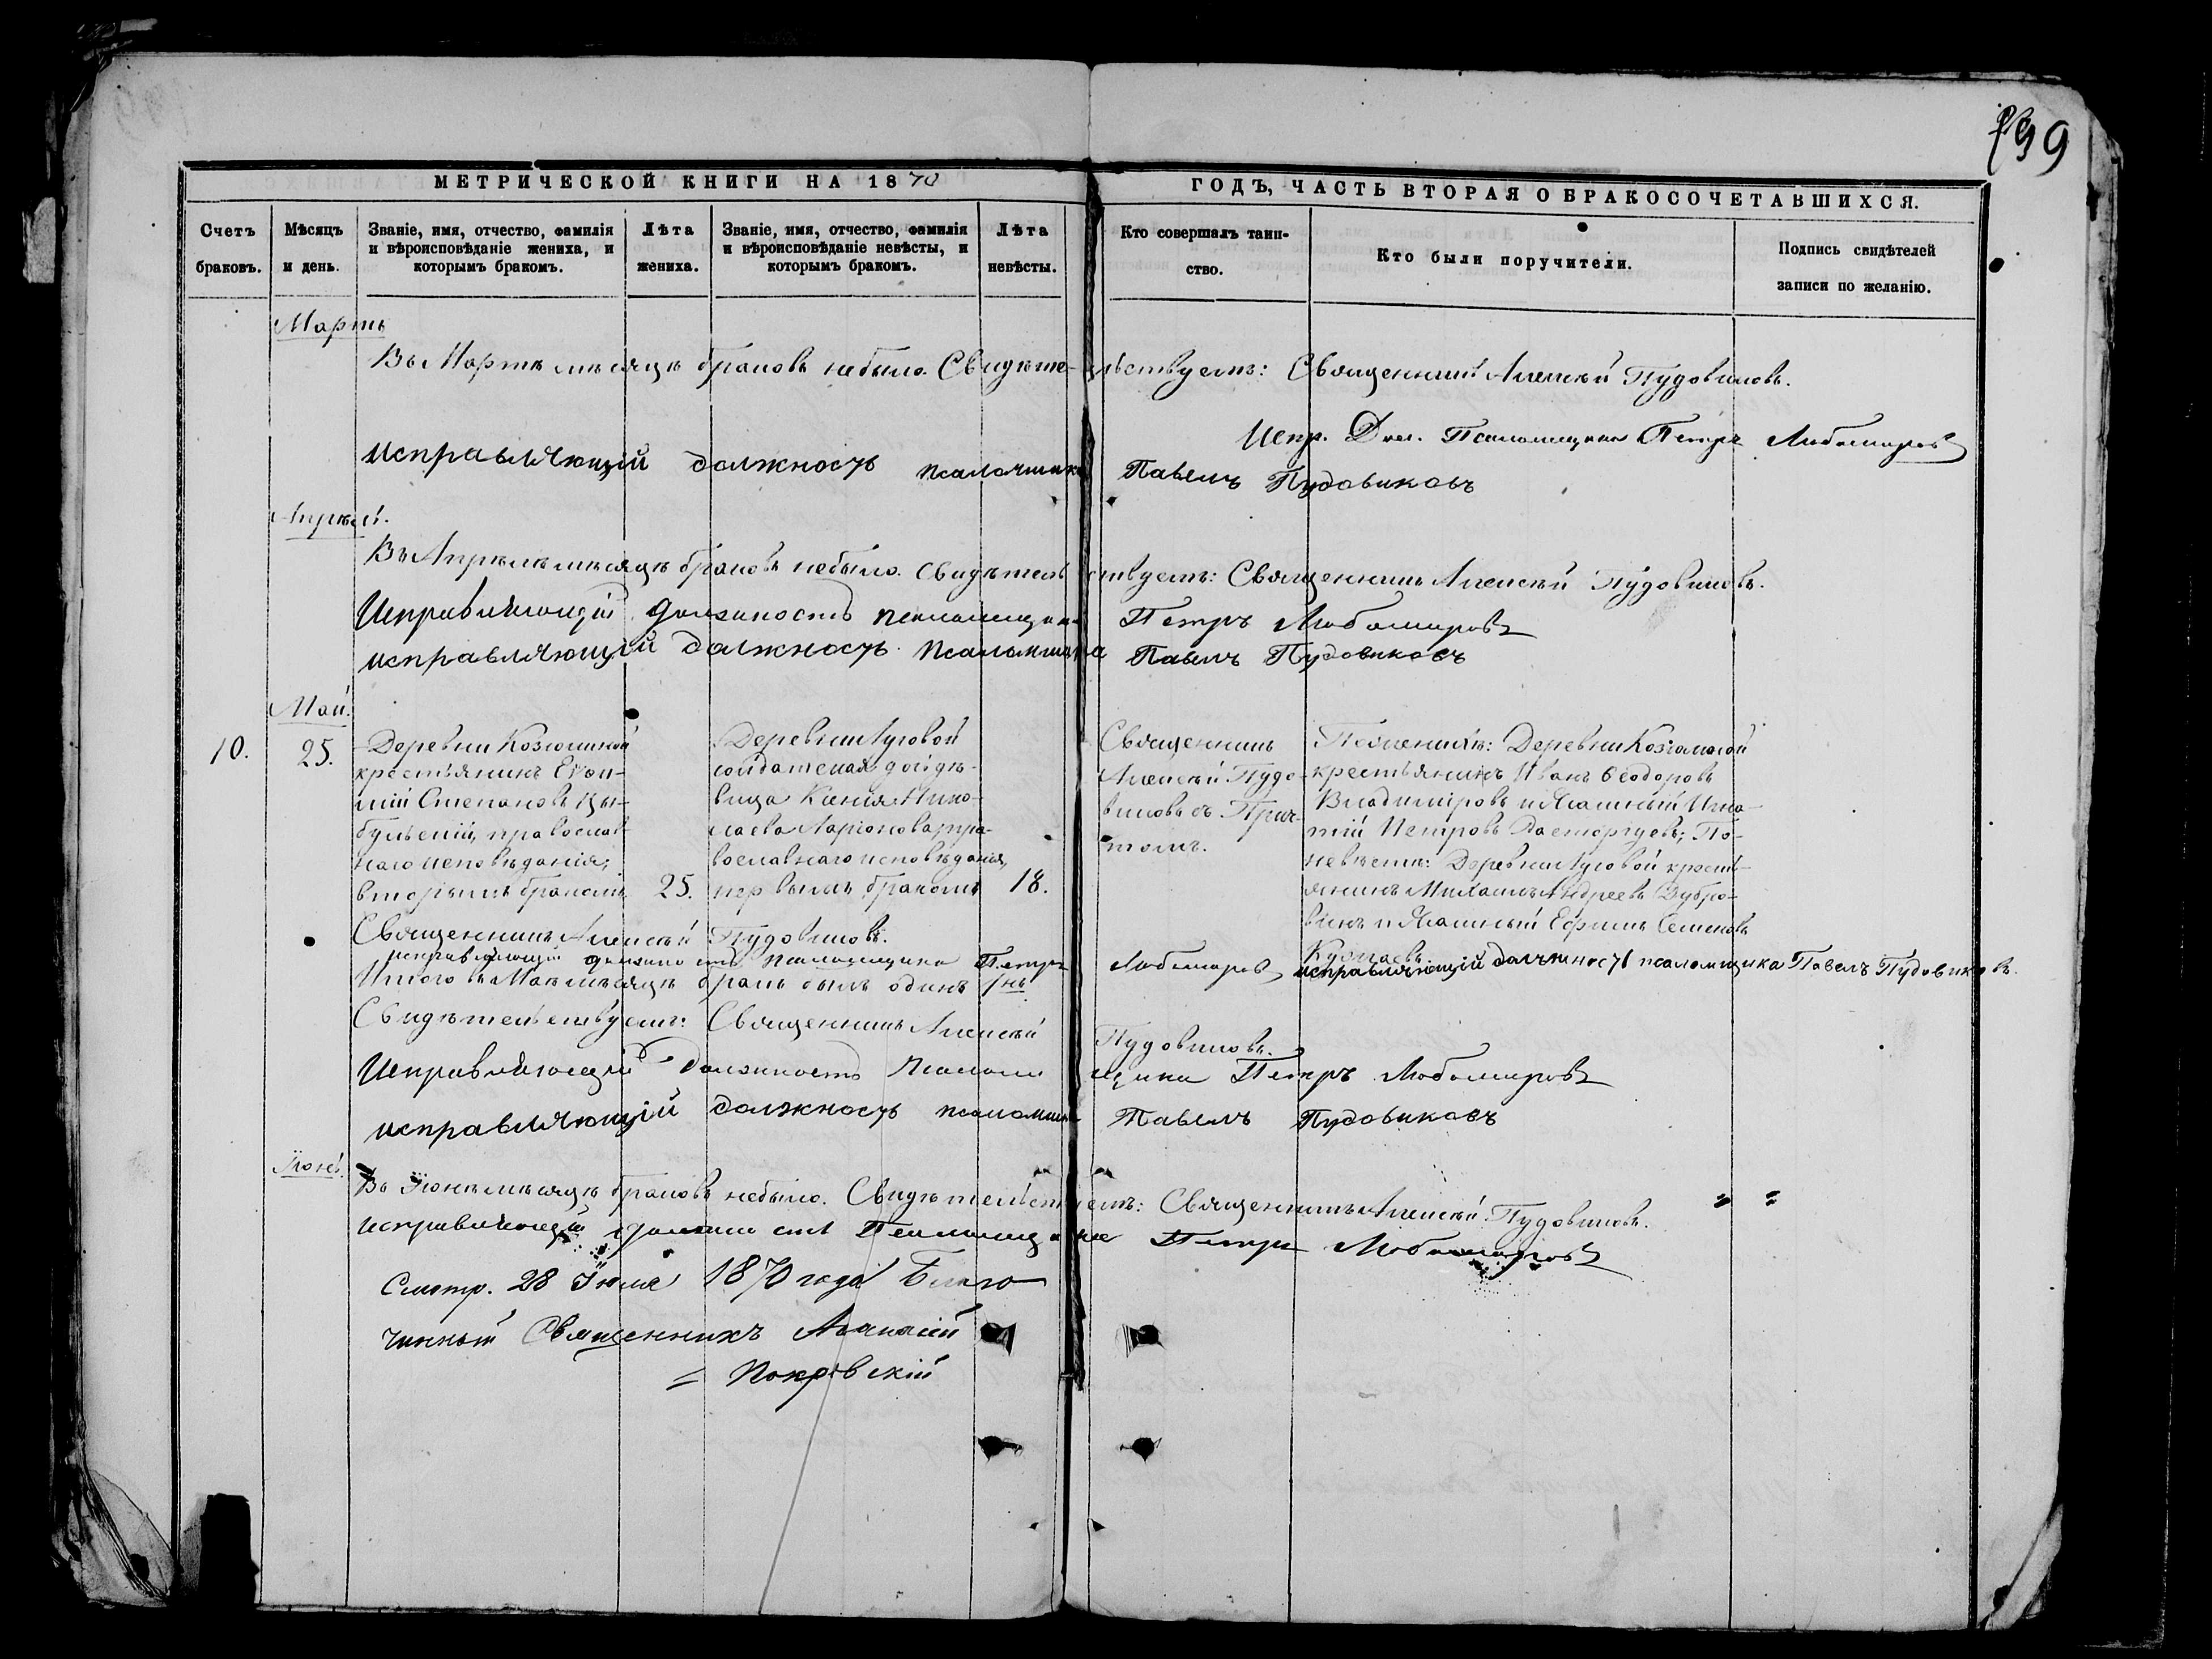 199
МЕТРИЧЕСКОЙ КНИГИ НА 1870
ГОДЪ, ЧАСТЬ ВТОРАЯ О БРАКОСОЧЕТАВШИХСЯ.
Счетъ браковъ.
Мѣсяцъ и день.
Званіе, имя, отчество, фамилія и вѣроисповѣданіе жениха, и которымъ бракомъ.
Лѣта жениха.
Званіе, имя, отчество, фамилія и вѣроисповѣданіе невѣсты, и которымъ бракомъ.
Лѣта невѣсты.
Кто совершалъ таинство.
Кто были поручители.
Подпись свидѣтелей записи по желанію.
Мартъ
Въ Мартѣ мѣсяцѣ браковъ небыло. Свидѣтельствуемъ: Священникъ Алексѣй Пудовиковъ.
Испр. Дол. Псаломщика Петръ Любомировъ
исправляющій должность псаломщика Павелъ Пудовиковъ
Апрѣль.
Въ Апрѣлѣ мѣсяцѣ браковъ небыло. Свидѣтельствуемъ: Священникъ Алексѣй Пудовиковъ.
Исправляющій должность псаломщика Петръ Любомировъ
исправляющій должность псаломщика Павелъ Пудовиковъ
Май.
10.
25.
Деревни
крестьянинъ
Степановъ
православ-
наго исповѣданія;
вторымъ бракомъ
25.
Деревни Луговой
солдатская дочь дѣ-
вица Ксенія Нико-
лаева Ларіонова, пра-
вославнаго исповѣданія,
первымъ бракомъ
18.
Священникъ
Алексѣй Пудо-
виковъ съ Прич-
томъ.
По женихѣ: Деревни
крестьянинъ Иванъ Ѳеодоровъ
Владиміровъ и Ясашный Игна-
тій Петровъ Расторгуевъ; По
невѣстѣ: Деревни Луговой кресть-
янинъ Михаилъ Андреевъ Дубро-
винъ и Ясашный Ефимъ Семеновъ
Священникъ Алексѣй Пудовиковъ.
исправляющій должность псаломщика Петръ Любомировъ исправляющій должность псаломщика Павелъ Пудовиковъ.
Итого въ Маѣ мѣсяцѣ бракъ былъ одинъ 1нъ
Свидѣтельствуемъ: Священникъ Алексѣй Пудовиковъ.
Исправляющій должность Псаломщика Петръ Любомировъ
исправляющій должность псаломщика Павелъ Пудовиковъ
Іюнь.
Въ Іюнѣ мѣсяцѣ браковъ небыло. Свидѣтельствуемъ: Священникъ Алексѣй Пудовиковъ.
исправляющій должность Псаломщика Петръ Любомировъ
Смотр. 28 Іюля 1870 года Благо-
чинный Священникъ Аѳанасій
Покровскій